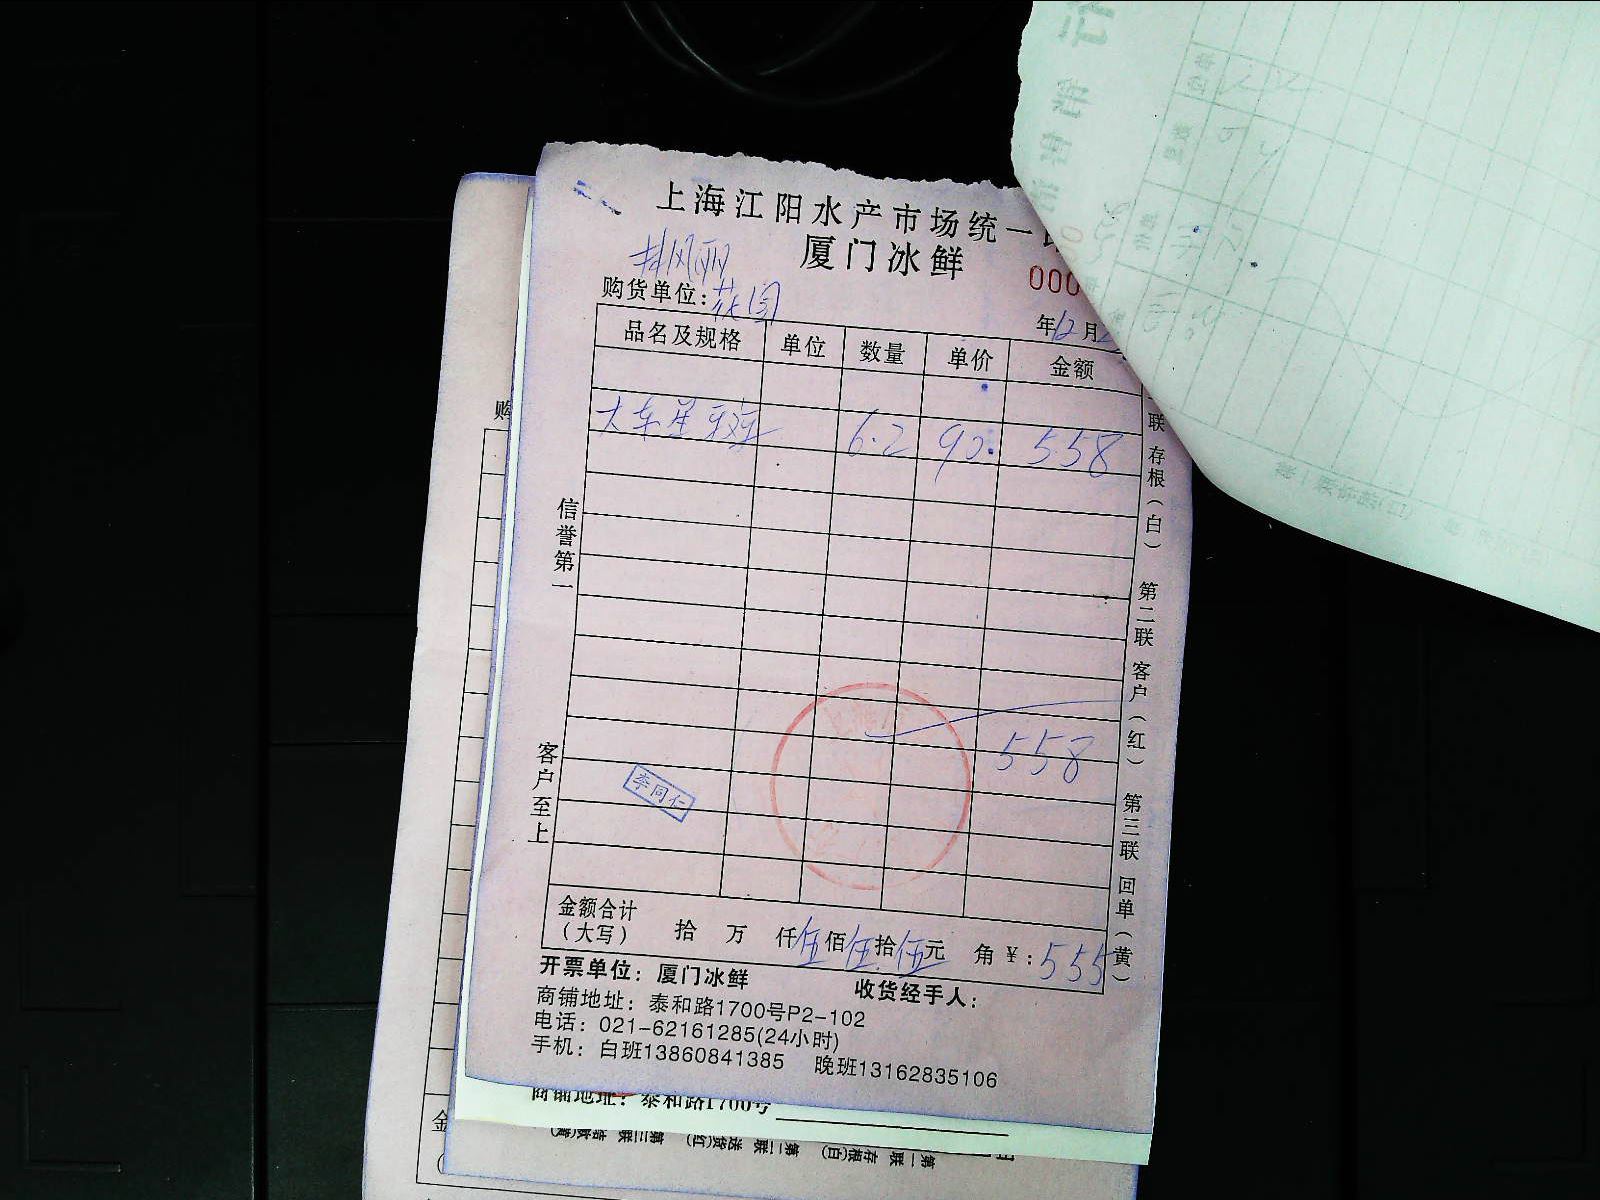 上海江阳水产市场统一
厦门冰鲜
000
购货单位：花园
年12月
品名及规格 单位 数量 单价 金额
大东星斑 6.2 90 558
558
信誉第一
客户至上
李同仁
联 存根（白） 第二联 客户（红） 第三联 回单（黄）
金额合计（大写） 拾 万 仟伍佰伍拾伍元 角 ¥:555
开票单位：厦门冰鲜 收货经手人：
商铺地址：泰和路1700号P2-102
电话：021-62161285(24小时)
手机：白班13860841385 晚班13162835106
商铺地址：泰和路1700号
购
金